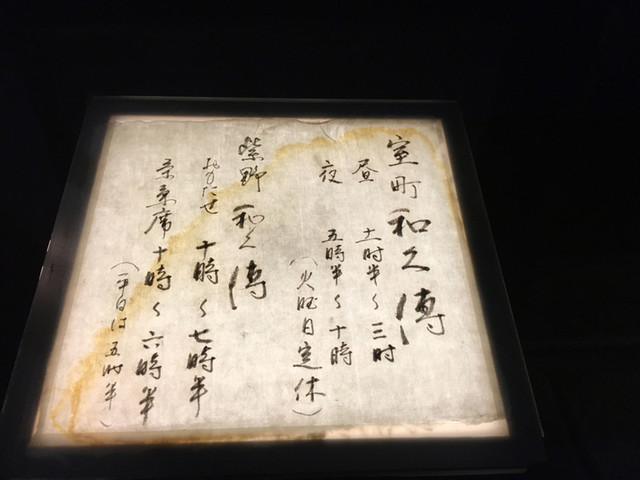 室町和久傳
昼 十一時半〜三時
夜 五時半〜十時
(火曜日定休)
紫野和久傳
おもたせ 十時〜七時半
茶菓席 十時〜六時半
(平日は五時半)